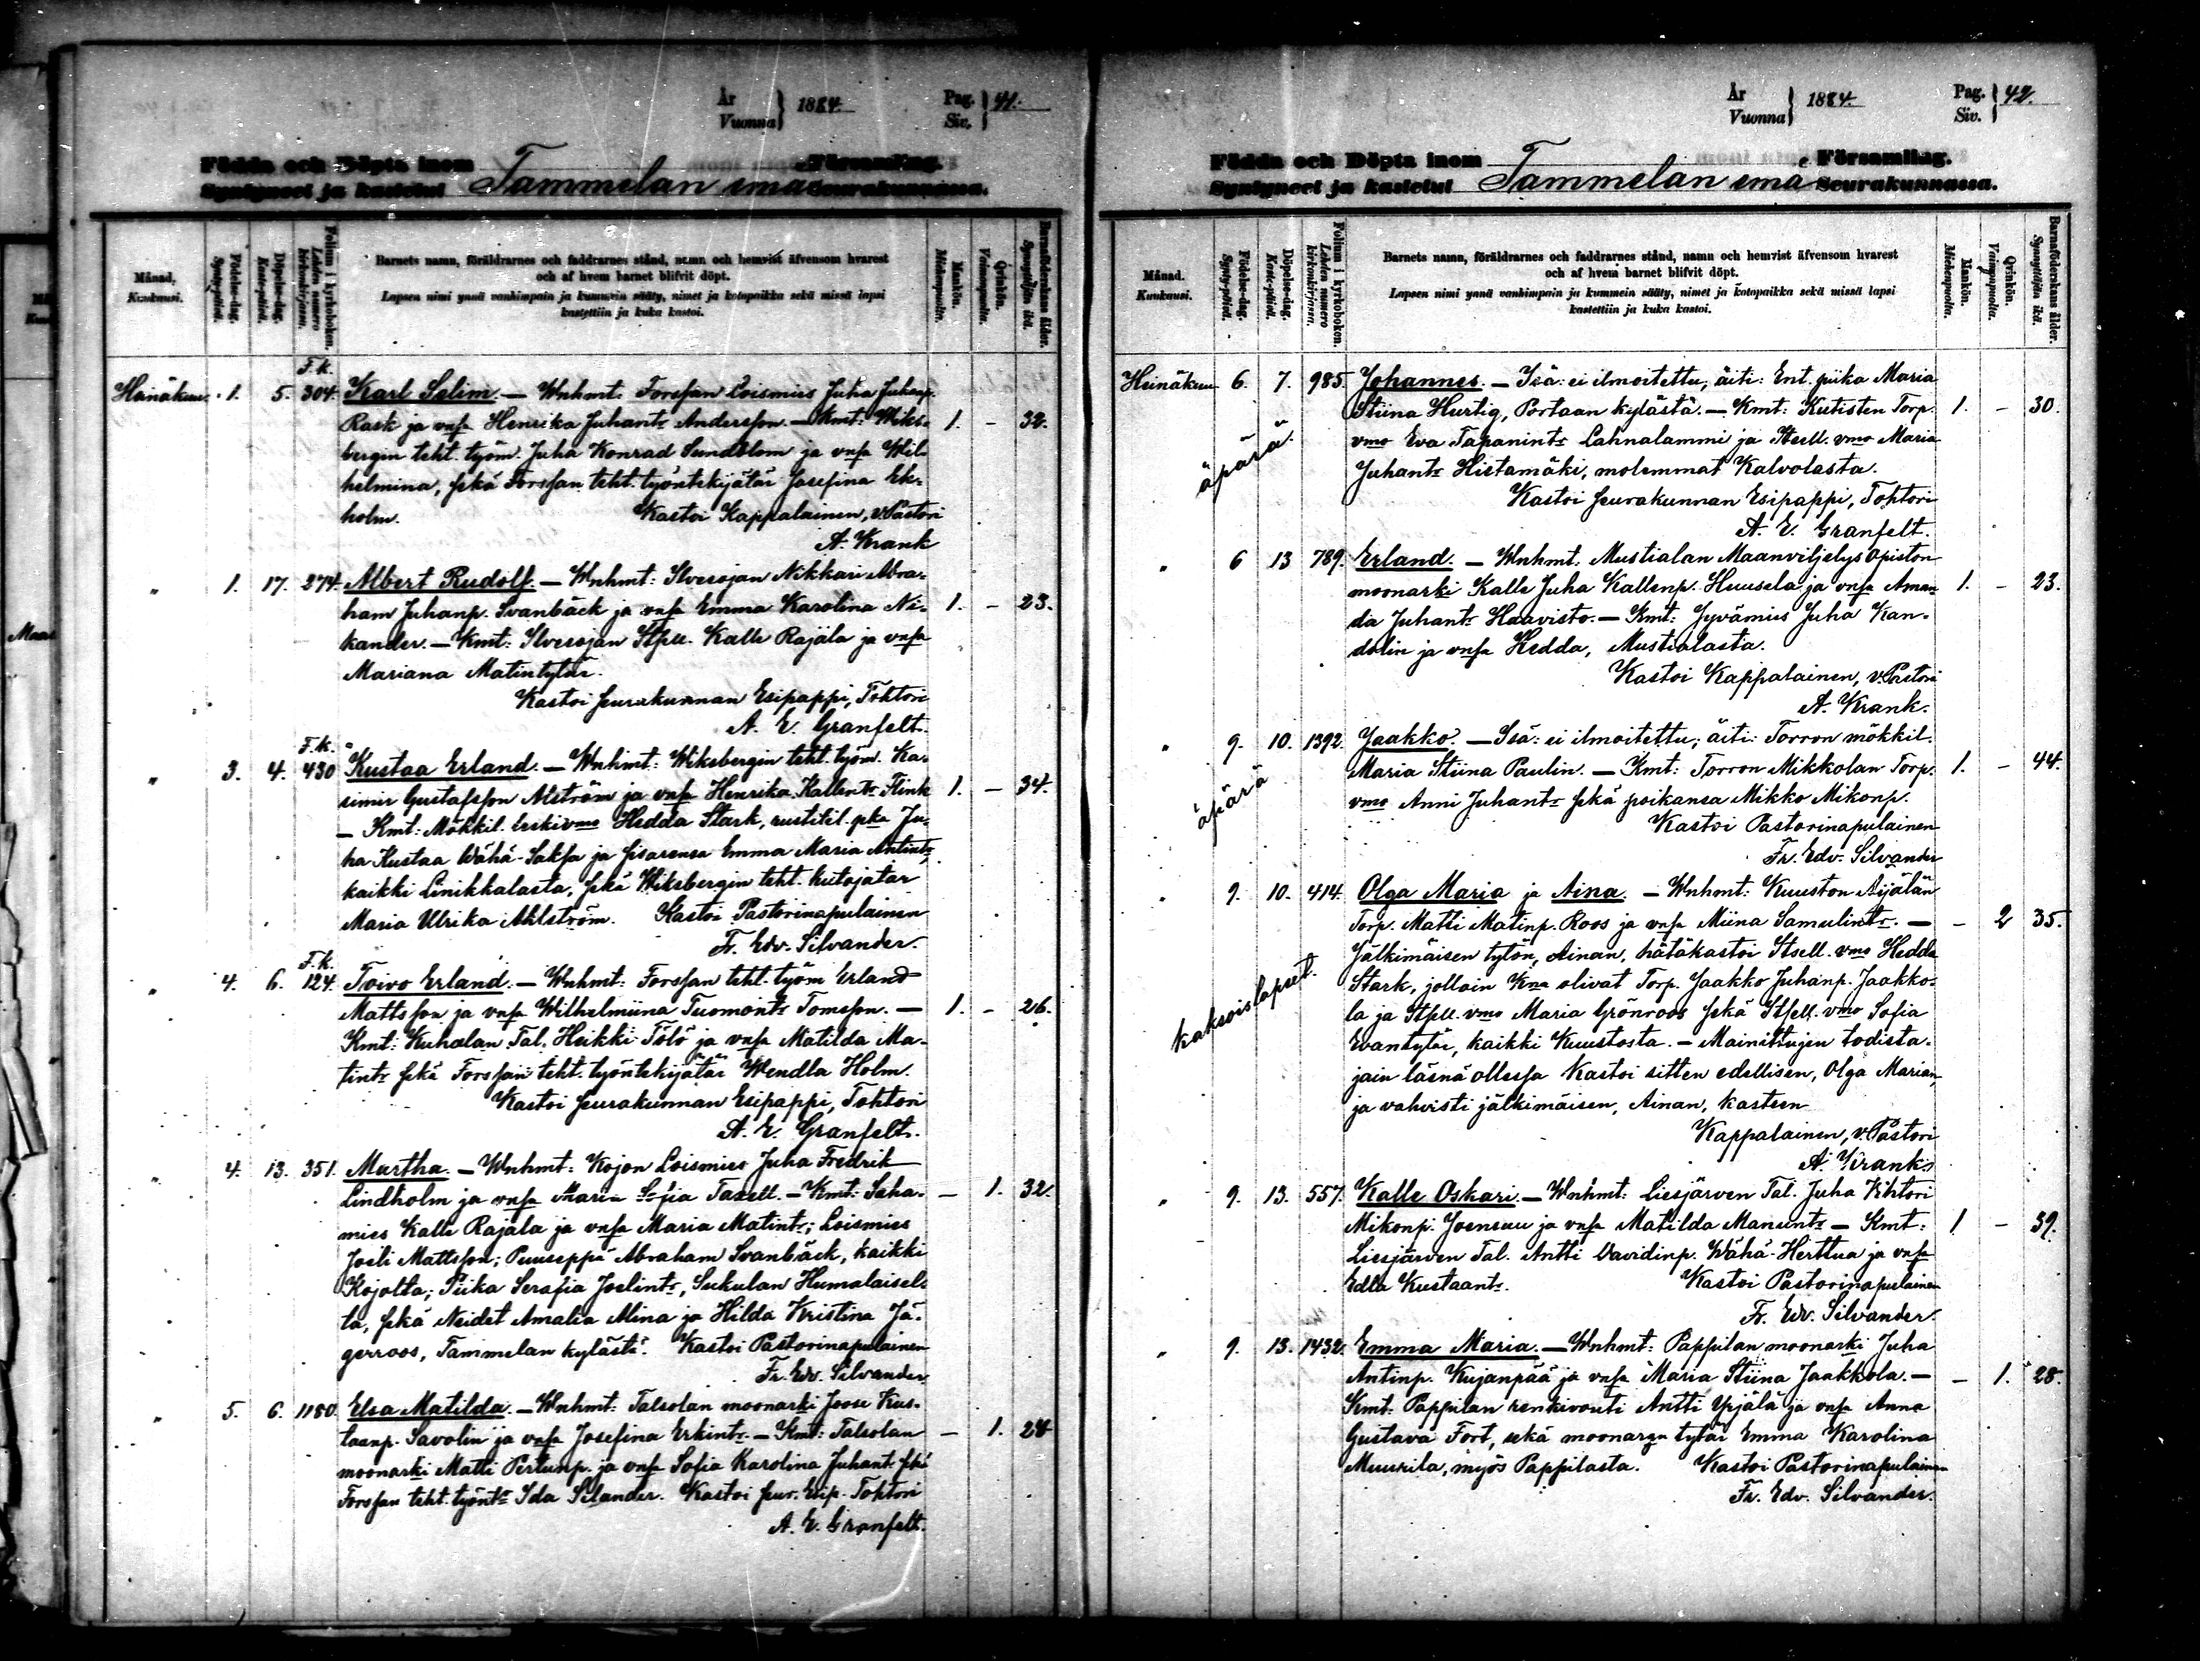 År
Vuonna } 1884.
Pag.
Siv. } 41.
Födda och Döpta inom Församling.
Syntyneet ja kastetut Tammelan emä Seurakunnassa.
Månad.
Kuukausi.
Födelse-dag.
Synty-päivä.
Döpelse-dag.
Kaste-päivä.
Folium i kyrkoboken.
Lehden numero kirkonkirjassa.
Barnets namn, föräldrarnes och faddrarnes stånd, namn och hemvist äfvensom hvarest
och af hvem barnet blifvit döpt.
Lapsen nimi ynnä vanhimpain ja kummein sääty, nimet ja kotopaikka sekä missä lapsi
kastettiin ja kuka kastoi.
Mankön.
Miehenpuolia.
Qvinkön.
Vaimonpuolia.
Barnaföderskans ålder.
Synnyttäjän ikä.
F.k.
Heinäkuu 1. 5. 304. Karl Selim. — Wnhmt. Forssan Loismies Juha Juhanp.
Rask ja vnsa Henrika Juhantr Andersson. — Kmt: Wiks- 1. - 32.
bergin teht. työm. Juha Konrad Sundblom ja vnsa Wil-
helmina, sekä Forssan teht. työntekijätär Josefina Ek-
holm. Kastoi Kappalainen, v. Pastori
A. Krank
" 1. 17. 274. Albert Rudolf. — Wnhmt: Ilvesojan Nikkari Abra-
ham Juhanp. Svanbäck ja vnsa Emma Karolina Ni- 1. - 23.
kander. — Kmt: Ilvesojan Itsell. Kalle Rajala ja vnsa
Mariana Matintytär.
Kastoi seurakunnan Esipappi, Tohtori
A. E. Granfelt.
F.k.
" 3. 4. 430 Kustaa Erland. — Wnhmt: Wiksbergin teht. työm. Ka-
simir Gustafsson Alström ja vnsa Henrika Kallentr Flink 1. - 34.
— Kmt: Mökkil. leskivmo Hedda Stark, rustitil. pka Ju-
ha Kustaa Wähä-Saksa ja sisarensa Emma Maria Antintr,
kaikki Linikkalasta, sekä Wiksbergin teht. kutojatar
Maria Ulrika Ahlström. Kastoi Pastorinapulainen
Fr. Edv. Silvander.
F.k.
" 4. 6. 124. Toivo Erland. — Wnhmt: Forssan teht. työm Erland
Mattsson ja vnsa Wilhelmiina Tuomontr Tomsson. — 1. - 26.
Kmt: Kuhalan Tal. Heikki Tölö ja vnsa Matilda Ma-
tintr sekä Forssan teht. työntekijätär Wendla Holm.
Kastoi seurakunnan Esipappi, Tohtori
A. E. Granfelt.
" 4. 13. 351. Martha. — Wnhmt: Kojon Loismies Juha Fredrik
Lindholm ja vnsa Maria Sofia Taxell. — Kmt: Saha- - 1. 32.
mies Kalle Rajala ja vnsa Maria Matintr; Loismies
Joeli Mattsson; Puuseppä Abraham Svanbäck, kaikki
Kojolta; Piika Serafia Joelintr, Sukulan Humalaisel-
ta, sekä Neidet Amalia Mina ja Hilda Kristina Jä-
gerroos, Tammelan kylästä. Kastoi Pastorinapulainen
Fr. Edv. Silvander.
" 5. 6. 1180. Elsa Matilda. — Wnhmt: Talsolan moonarki Joose Kus-
taanp. Savolin ja vnsa Josefina Erkintr. — Kmt: Talsolan - 1. 24
moonarki Matti Pertunp. ja vnsa Sofia Karolina Juhant. sekä
Forssan teht. työntr Ida Silander. Kastoi seur. Esip. Tohtori
A. E. Granfelt.
År
Vuonna } 1884.
Pag.
Siv. } 42.
Födda och Döpta inom Församlig.
Syntyneet ja kastetut Tammelan emä Seurakunnassa.
Månad.
Kuukausi.
Födelse-dag.
Synty-päivä.
Döpelse-dag.
Kaste-päivä.
Folium i kyrkoboken.
Lehden numero kirkonkirjassa.
Barnets namn, föräldrarnes och faddrarnes stånd, namn och hemvist äfvensom hvarest
och af hvem barnet blifvit döpt.
Lapsen nimi ynnä vanhimpain ja kummein sääty, nimet ja kotopaikka sekä missä lapsi
kastettiin ja kuka kastoi.
Mankön.
Miehenpuolia.
Qvinkön.
Vaimonpuolia.
Barnaföderskans ålder.
Synnyttäjän ikä.
Heinäkuu 6. 7. 985. Johannes. — Isä: ei ilmoitettu, äiti: Ent. piika Maria
Stiina Hurtig, Portaan kylästä. — Kmt: Kutisten Torp. 1. - 30.
äpärä vmo Eva Tapanintr Lahnalammi ja Itsell. vmo Maria
Juhantr Hietamäki, molemmat Kalvolasta.
Kastoi seurakunnan Esipappi, Tohtori
A. E. Granfelt.
" 6 13 789. Erland. — Wnhmt. Mustialan Maanviljelys opiston
moonarki Kalle Juha Kallenp. Huusela ja vnsa Aman- 1. - 23.
da Juhantr Haavisto. — Kmt: Jyvämies Juha Kan-
dolin ja vnsa Hedda, Mustialasta.
Kastoi Kappalainen, v. Pastori
A. Krank.
" 9. 10. 1392. Jaakko. — Isä: ei ilmoitettu; äiti: Torron mökkil.
Maria Stiina Paulin. — Kmt: Torron Mikkolan Torp. 1. - 44.
äpärä vmo Anni Juhantr sekä poikansa Mikko Mikonp.
Kastoi Pastorinapulainen
Fr. Edv. Silvander
" 9. 10. 414. Olga Maria ja Aina. — Wnhmt: Kuuston Äijälän
Torp. Matti Matinp. Roos ja vnsa Miina Samulintr. — - 2 35.
Jälkimäisen tytön, Ainan, hätäkastoi Itsell. vmo Hedda
kaksoislapset. Stark, jolloin Kna olivat Torp. Jaakko Juhanp. Jaakko-
la ja Itsell. vmo Maria Grönroos sekä Itsell. vmo Sofia
Evantytär, kaikki Kuustosta. — Mainittujen todista-
jain läsnä ollessa Kastoi sitten edellisen, Olga Marian,
ja vahvisti jälkimäisen, Ainan, kasteen
Kappalainen, v. Pastori
A. Krank.
" 9. 13. 557. Kalle Oskari. — Wnhmt: Liesjärven Tal. Juha Vihtori
Mikonp. Joensuu ja vnsa Matilda Manuntr — Kmt: 1 - 39.
Liesjärven Tal. Antti Davidinp. Wähä-Herttua ja vnsa
Edla Kustaantr. Kastoi Pastorinapulainen
Fr. Edv. Silvander.
" 9. 13. 1432. Emma Maria. — Wnhmt: Pappilan moonarki Juha
Antinp. Kujanpää ja vnsa Maria Stiina Jaakkola. — - 1. 28.
Kmt: Pappilan renkivouti Antti Ypjälä ja vnsa Anna
Gustava Fort, sekä moonargn tytär Emma Karolina
Muurila, myös Pappilasta. Kastoi Pastorinapulainen
Fr. Edv. Silvander.